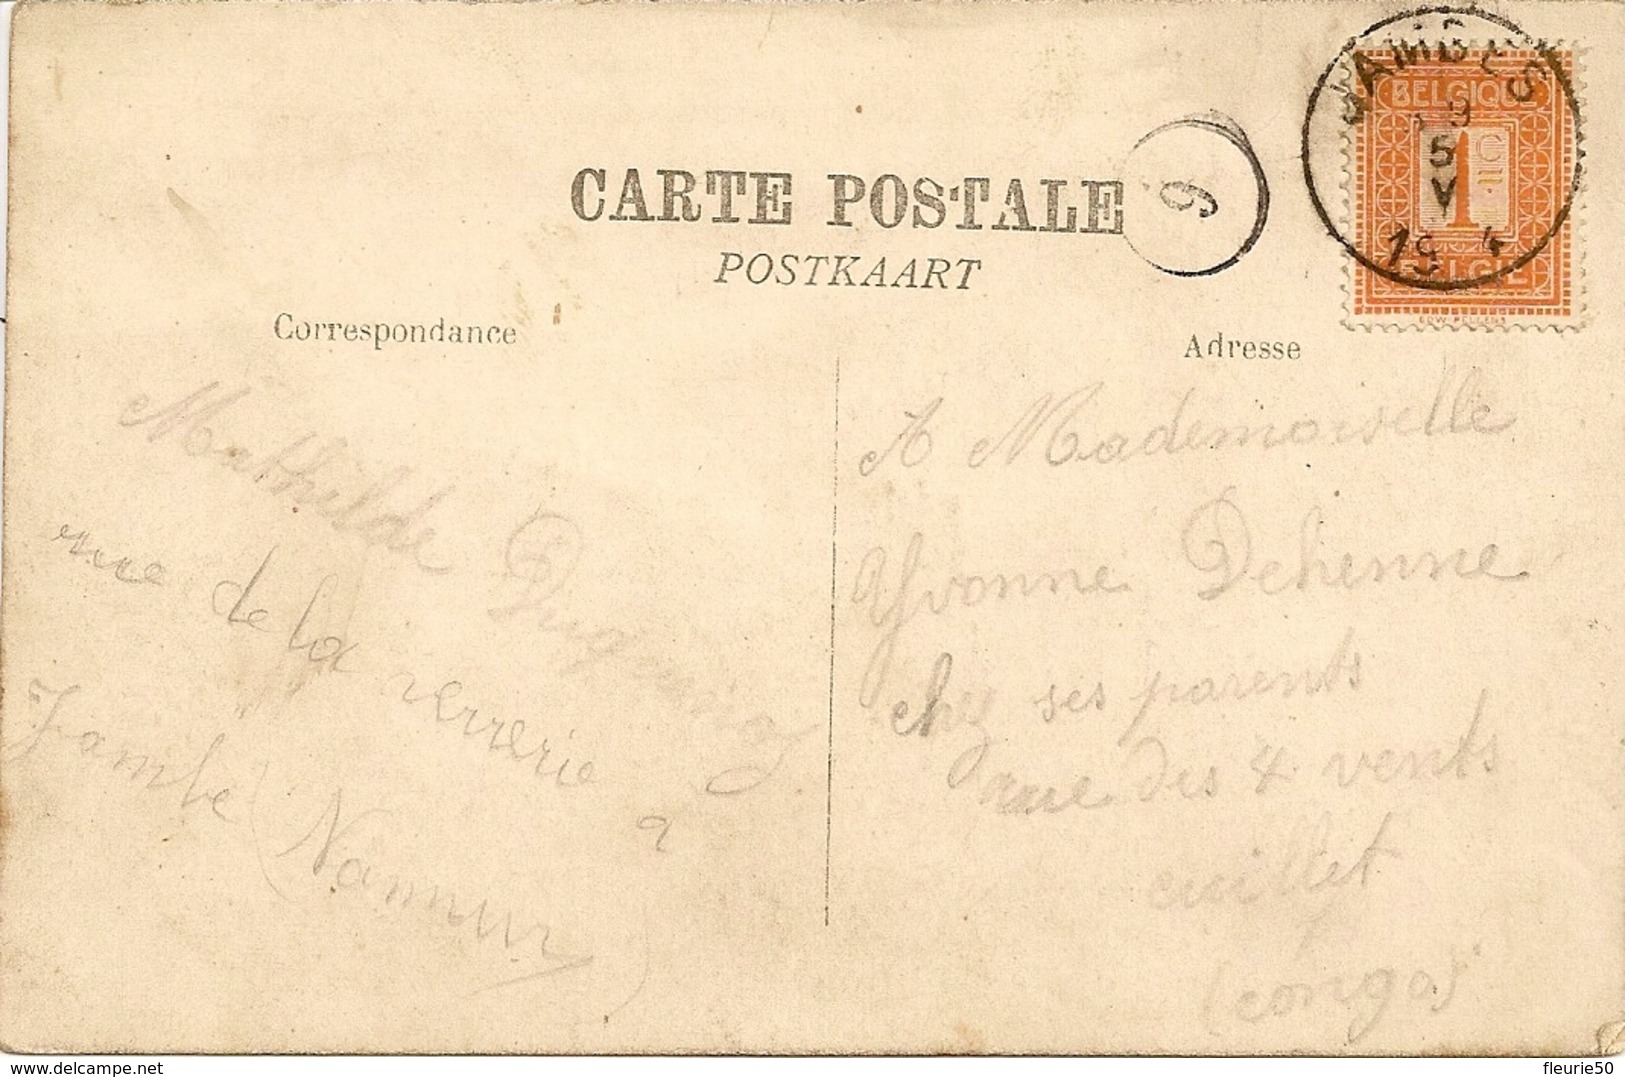 CARTE POSTALE
POSTKAART
Correspondance
Adresse
JAMBES
9
5
V
19 4
BELGIQUE
1
BELGIE
EDW. PELLENS
9
Mathilde
rue de la verrerie à
Jambe (Namur)
A Mademoiselle
Yvonne Dehenne
chez ses parents
rue des 4 vents
cuillet
(congo)
delcampe.net
fleurie50